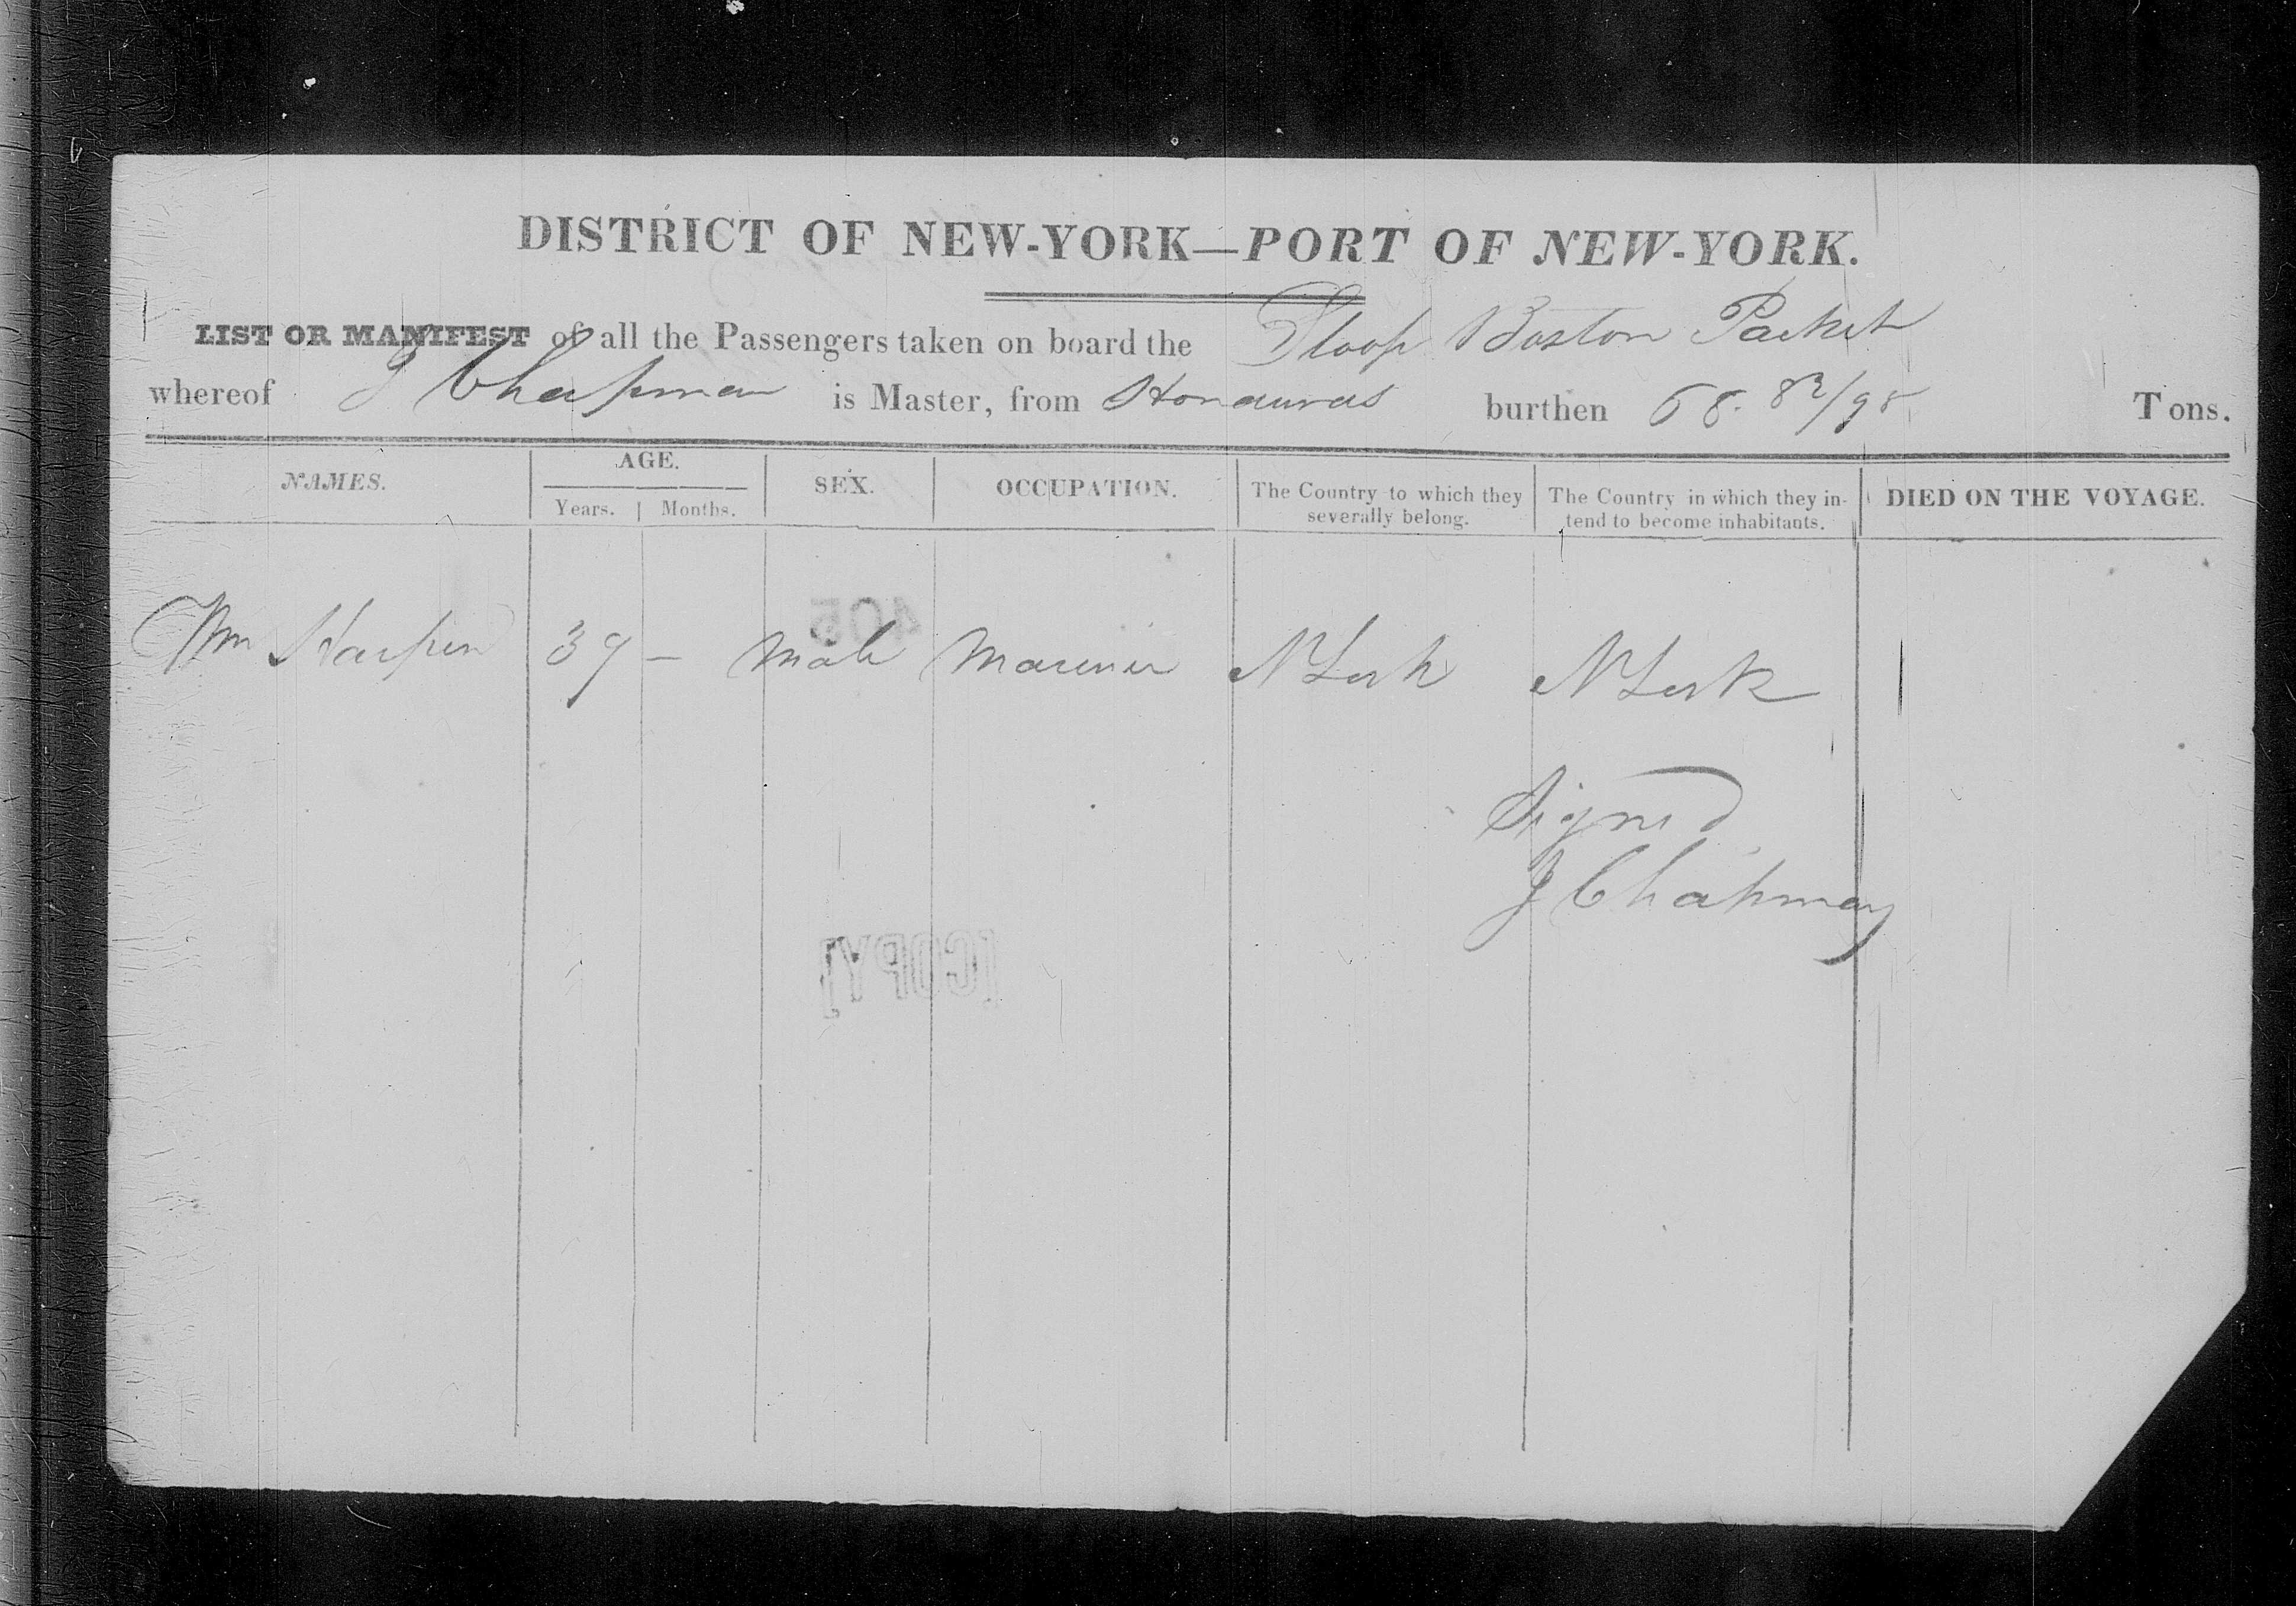 DISTRICT OF NEW-YORK—PORT OF NEW-YORK.
LIST OR MANIFEST of all the Passengers taken on board the Sloop Boston Packet
whereof J Chapman is Master, from Honduras burthen 68. 82/95 Tons.
NAMES. AGE. SEX. OCCUPATION. The Country to which they severally belong. The Country in which they in- tend to become inhabitants. DIED ON THE VOYAGE.
Years. Months.
405
Wm 39 — Male Mariner N York N York
Signed
J Chapman
[COPY]